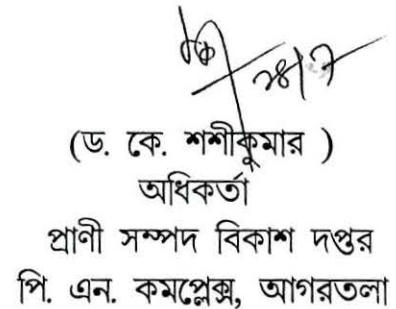 (ড. কে. শশীকুমার )
অধিকর্তা
প্রাণী সম্পদ বিকাশ দপ্তর
পি. এন. কমপ্লেক্স, আগরতলা